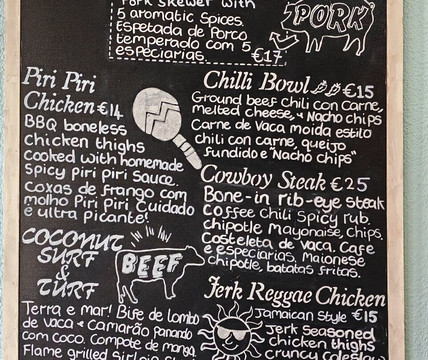 Pork skewer with
5 aromatic spices.
Espetada de Porco
temperado com 5
especiarias.
€17
PORK
Piri Piri
Chicken €14
BBQ boneless
Chicken thighs
Cooked with homemade
Spicy piri piri sauce.
Coxas de frango com
molho Piri Piri Cuidado
é ultra picante!
COCONUT
SURF
&
TURF
BEEF
Terra e mar! Bife de lombo
de vaca & Camarão panado
com coco. Compote de manga.
Flame grilled sirloin
Chilli Bowl €15
Ground beef Chili con Carne,
melted cheese, & Nacho chips
Carne de Vaca moida estilo
chili con carne, queijo
fundido e "Nacho chips"
Cowboy Steak €25
Bone-in rib-eye steak
Coffee Chili Spicy rub.
chipotle Mayonaise, Chips.
Costeleta de vaca. Cafe
e especiarias, Maionese
chipotle, batatas fritas.
Jerk Reggae Chicken
Jamaican Style €15
Jerk Seasoned
chicken thighs
crunchy coleslaw